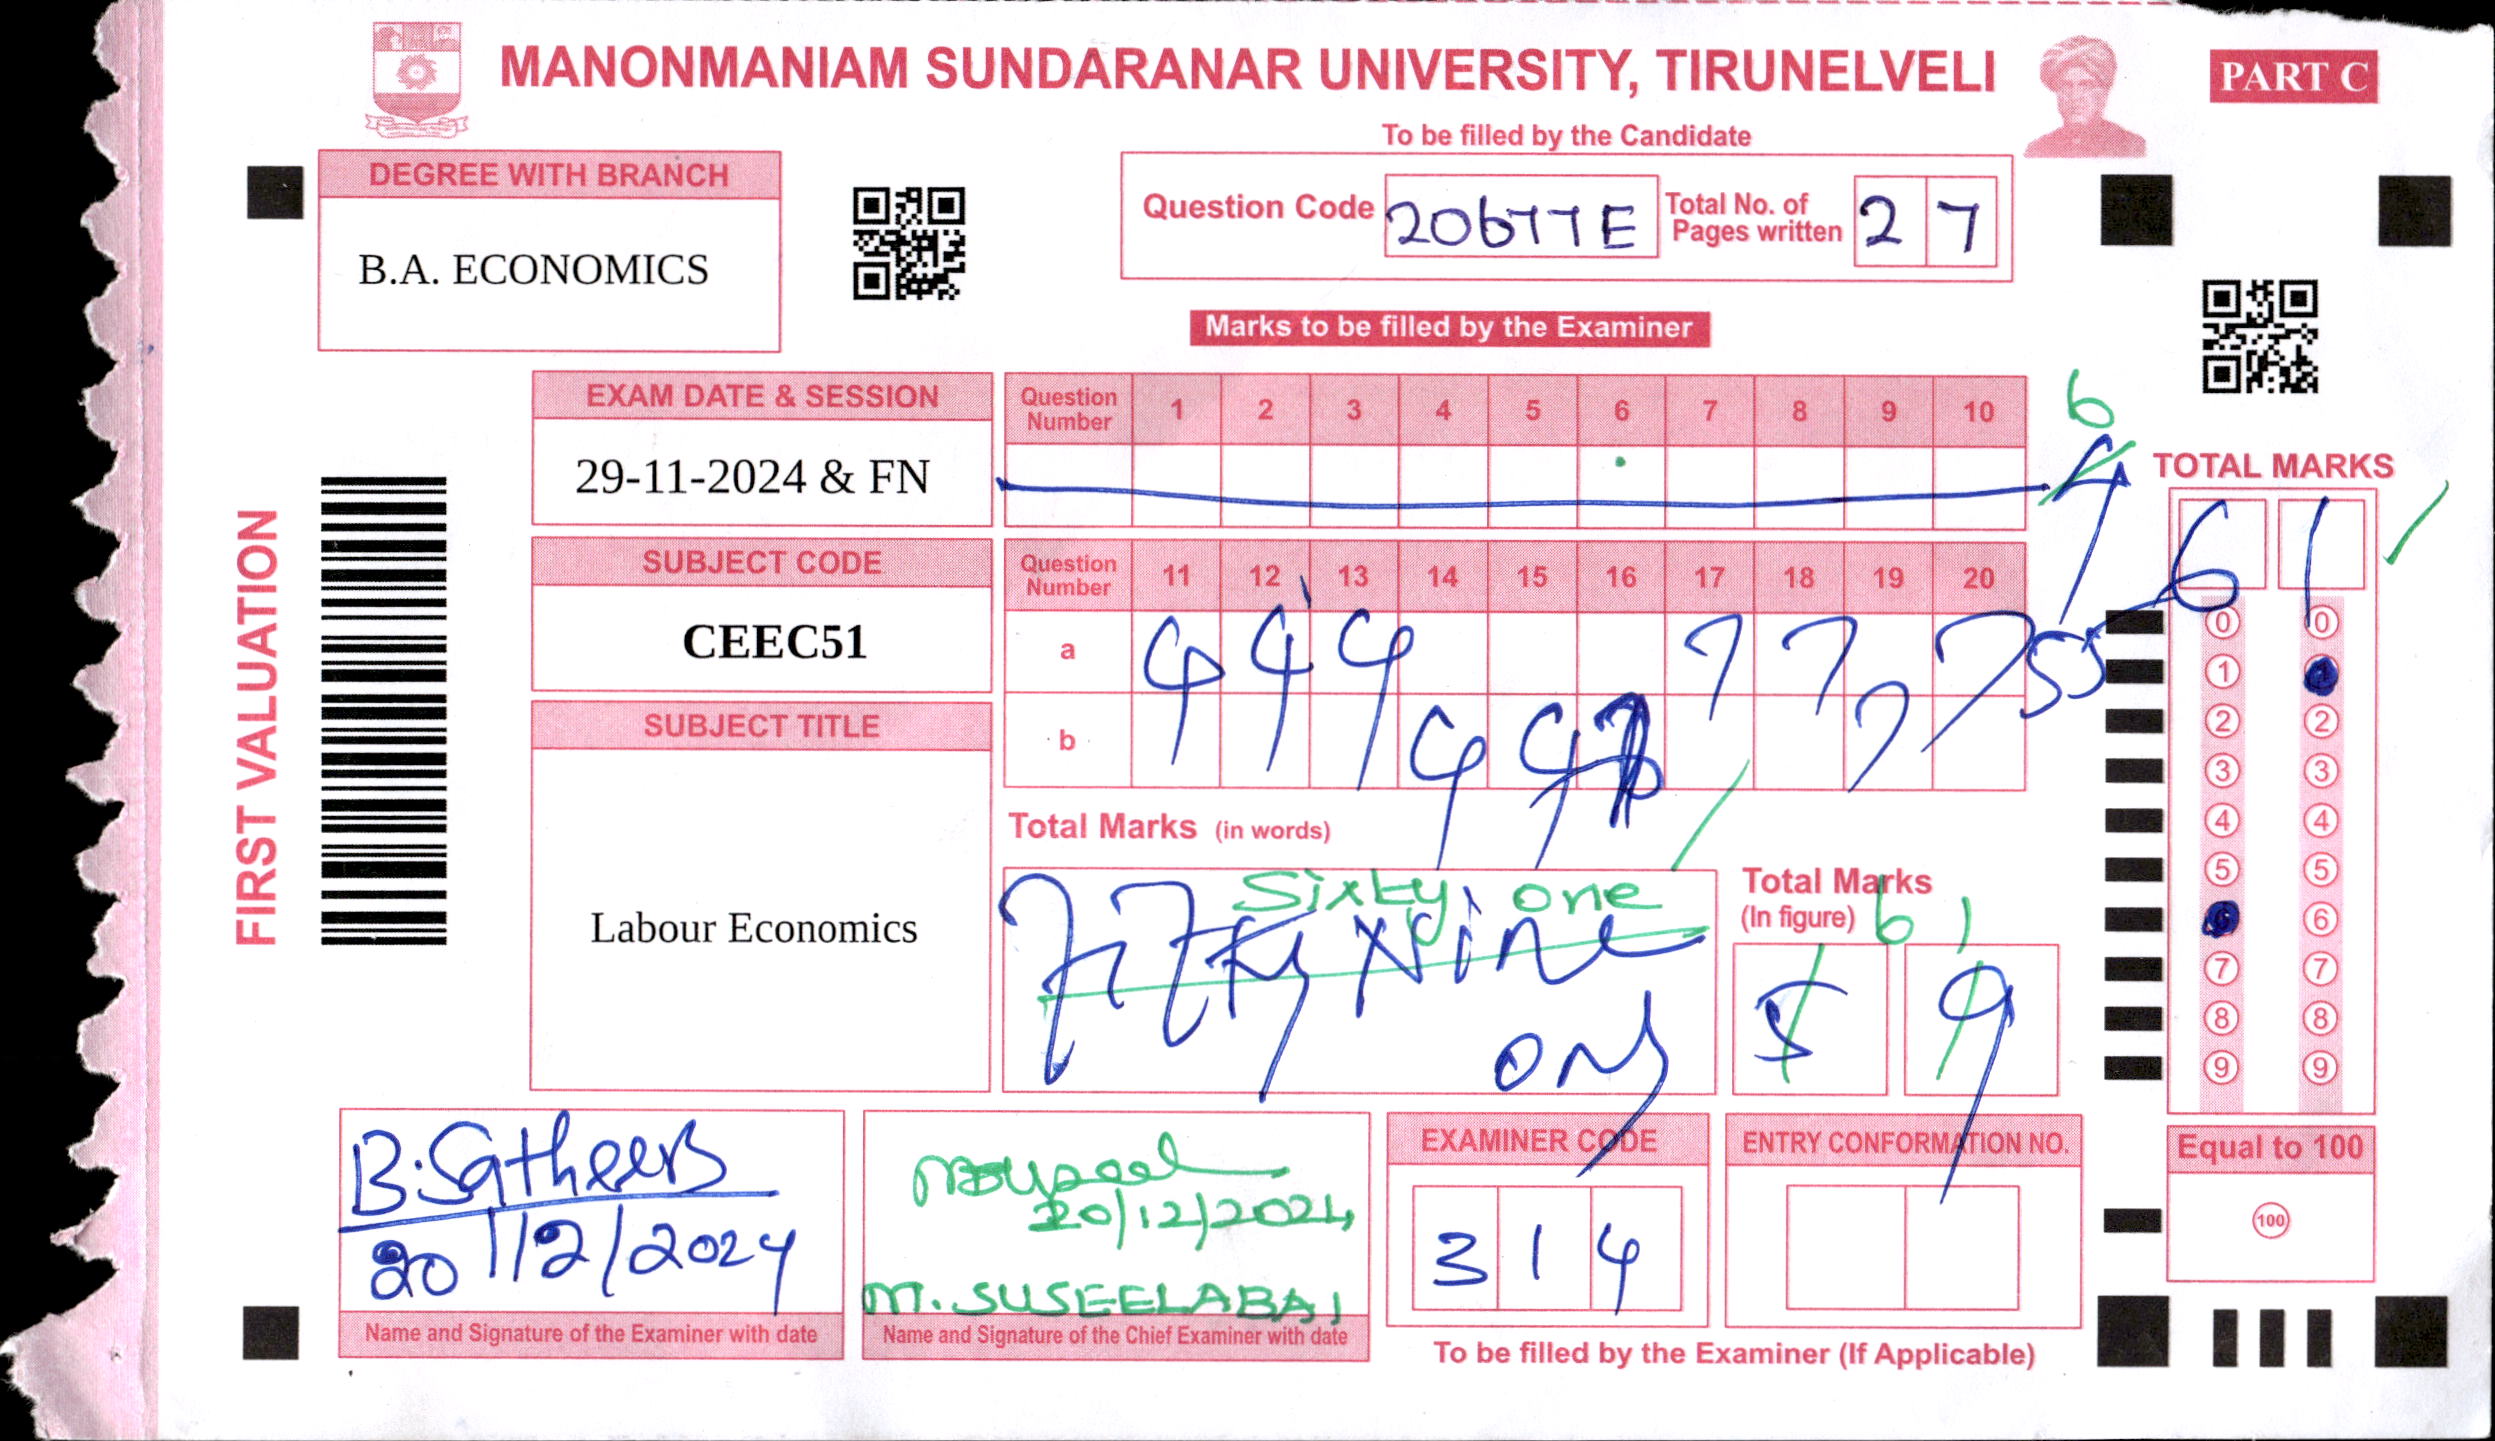 MANONMANIAM SUNDARANAR UNIVERSITY, TIRUNELVELI
PART C
To be filled by the Candidate
DEGREE WITH BRANCH
B.A. ECONOMICS
Question Code 20677E Total No. of Pages written 2 7
Marks to be filled by the Examiner
FIRST VALUATION
EXAM DATE & SESSION
29-11-2024 & FN
SUBJECT CODE
CEEC51
SUBJECT TITLE
Labour Economics
Question Number 1 2 3 4 5 6 7 8 9 10
6
4
Question Number 11 12 13 14 15 16 17 18 19 20
a 4 4 4 7 7 7 55
b 4 4 7
Total Marks (in words)
Sixty one
Fifty Nine
only
Total Marks
(In figure)
6 1
5 9
TOTAL MARKS
6 1
0 0
1
2 2
3 3
4 4
5 5
6
7 7
8 8
9 9
Equal to 100
100
B. Satheesh
20/12/2024
Name and Signature of the Examiner with date
20/12/2024
M. SUSEELABAI
Name and Signature of the Chief Examiner with date
EXAMINER CODE
3 1 4
ENTRY CONFORMATION NO.
To be filled by the Examiner (If Applicable)